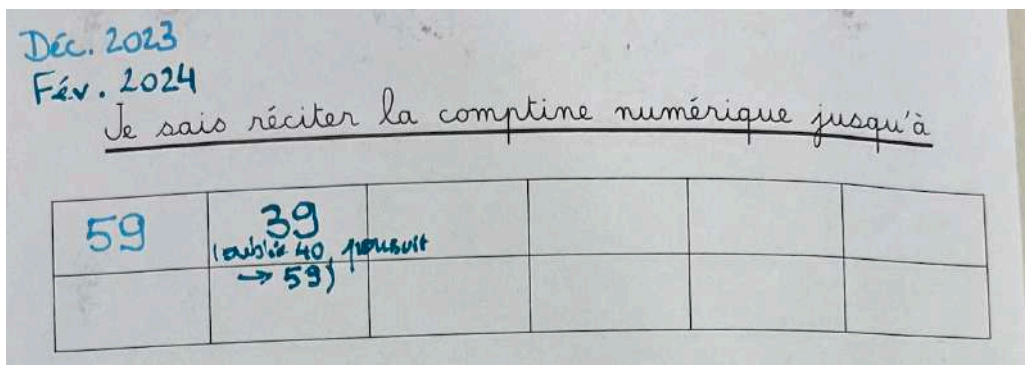 Déc. 2023
Fév. 2024
Je sais réciter la comptine numérique jusqu'à
59 39
(oublie 40, poursuit
→ 59)